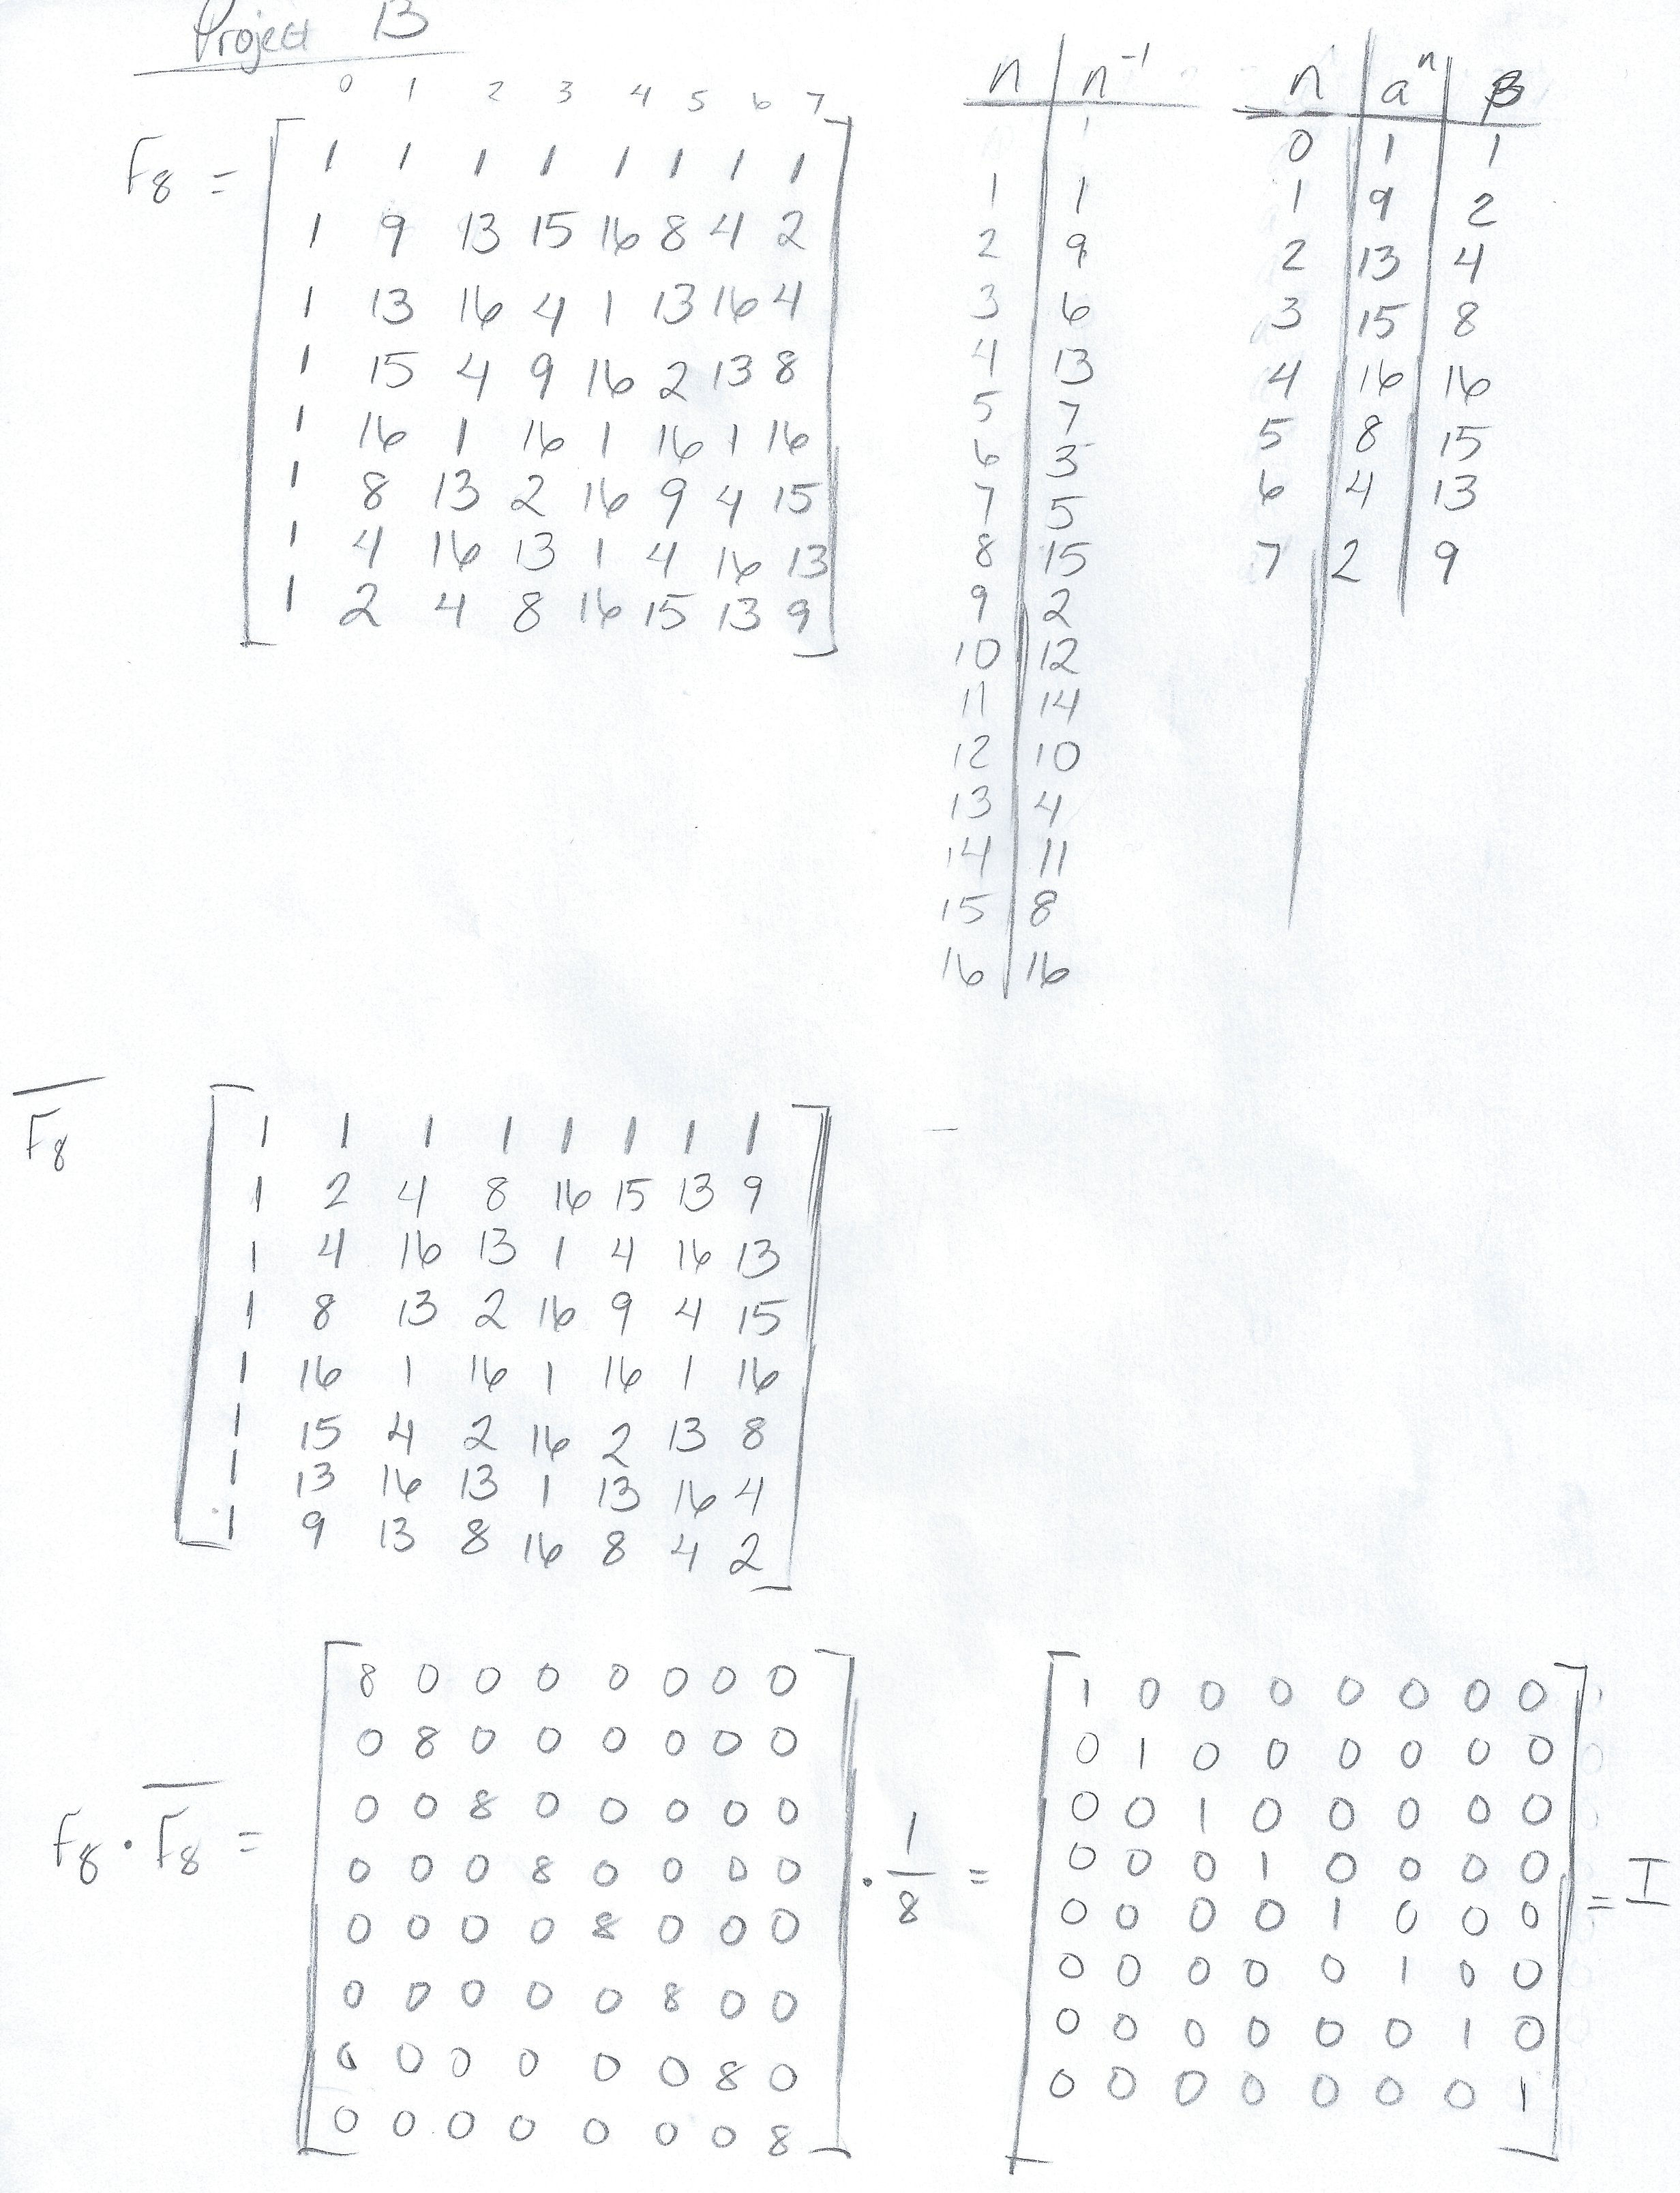 Project 13
0 1 2 3 4 5 6 7
F8 =
1 1 1 1 1 1 1 1
1 9 13 15 16 8 4 2
1 13 16 4 1 13 16 4
1 15 4 9 16 2 13 8
1 16 1 16 1 16 1 16
1 8 13 2 16 9 4 15
1 4 16 13 1 4 16 13
1 2 4 8 16 15 13 9
n n⁻¹
1 1
2 9
3 6
4 13
5 7
6 3
7 5
8 15
9 2
10 12
11 14
12 10
13 4
14 11
15 8
16 16
n aⁿ β
0 1 1
1 9 2
2 13 4
3 15 8
4 16 16
5 8 15
6 4 13
7 2 9
F̅8
1 1 1 1 1 1 1 1
1 2 4 8 16 15 13 9
1 4 16 13 1 4 16 13
1 8 13 2 16 9 4 15
1 16 1 16 1 16 1 16
1 15 4 2 16 2 13 8
1 13 16 13 1 13 16 4
1 9 13 8 16 8 4 2
F8 · F̅8 =
8 0 0 0 0 0 0 0
0 8 0 0 0 0 0 0
0 0 8 0 0 0 0 0
0 0 0 8 0 0 0 0
0 0 0 0 8 0 0 0
0 0 0 0 0 8 0 0
0 0 0 0 0 0 8 0
0 0 0 0 0 0 0 8
· 1/8 =
1 0 0 0 0 0 0 0
0 1 0 0 0 0 0 0
0 0 1 0 0 0 0 0
0 0 0 1 0 0 0 0
0 0 0 0 1 0 0 0
0 0 0 0 0 1 0 0
0 0 0 0 0 0 1 0
0 0 0 0 0 0 0 1
= I